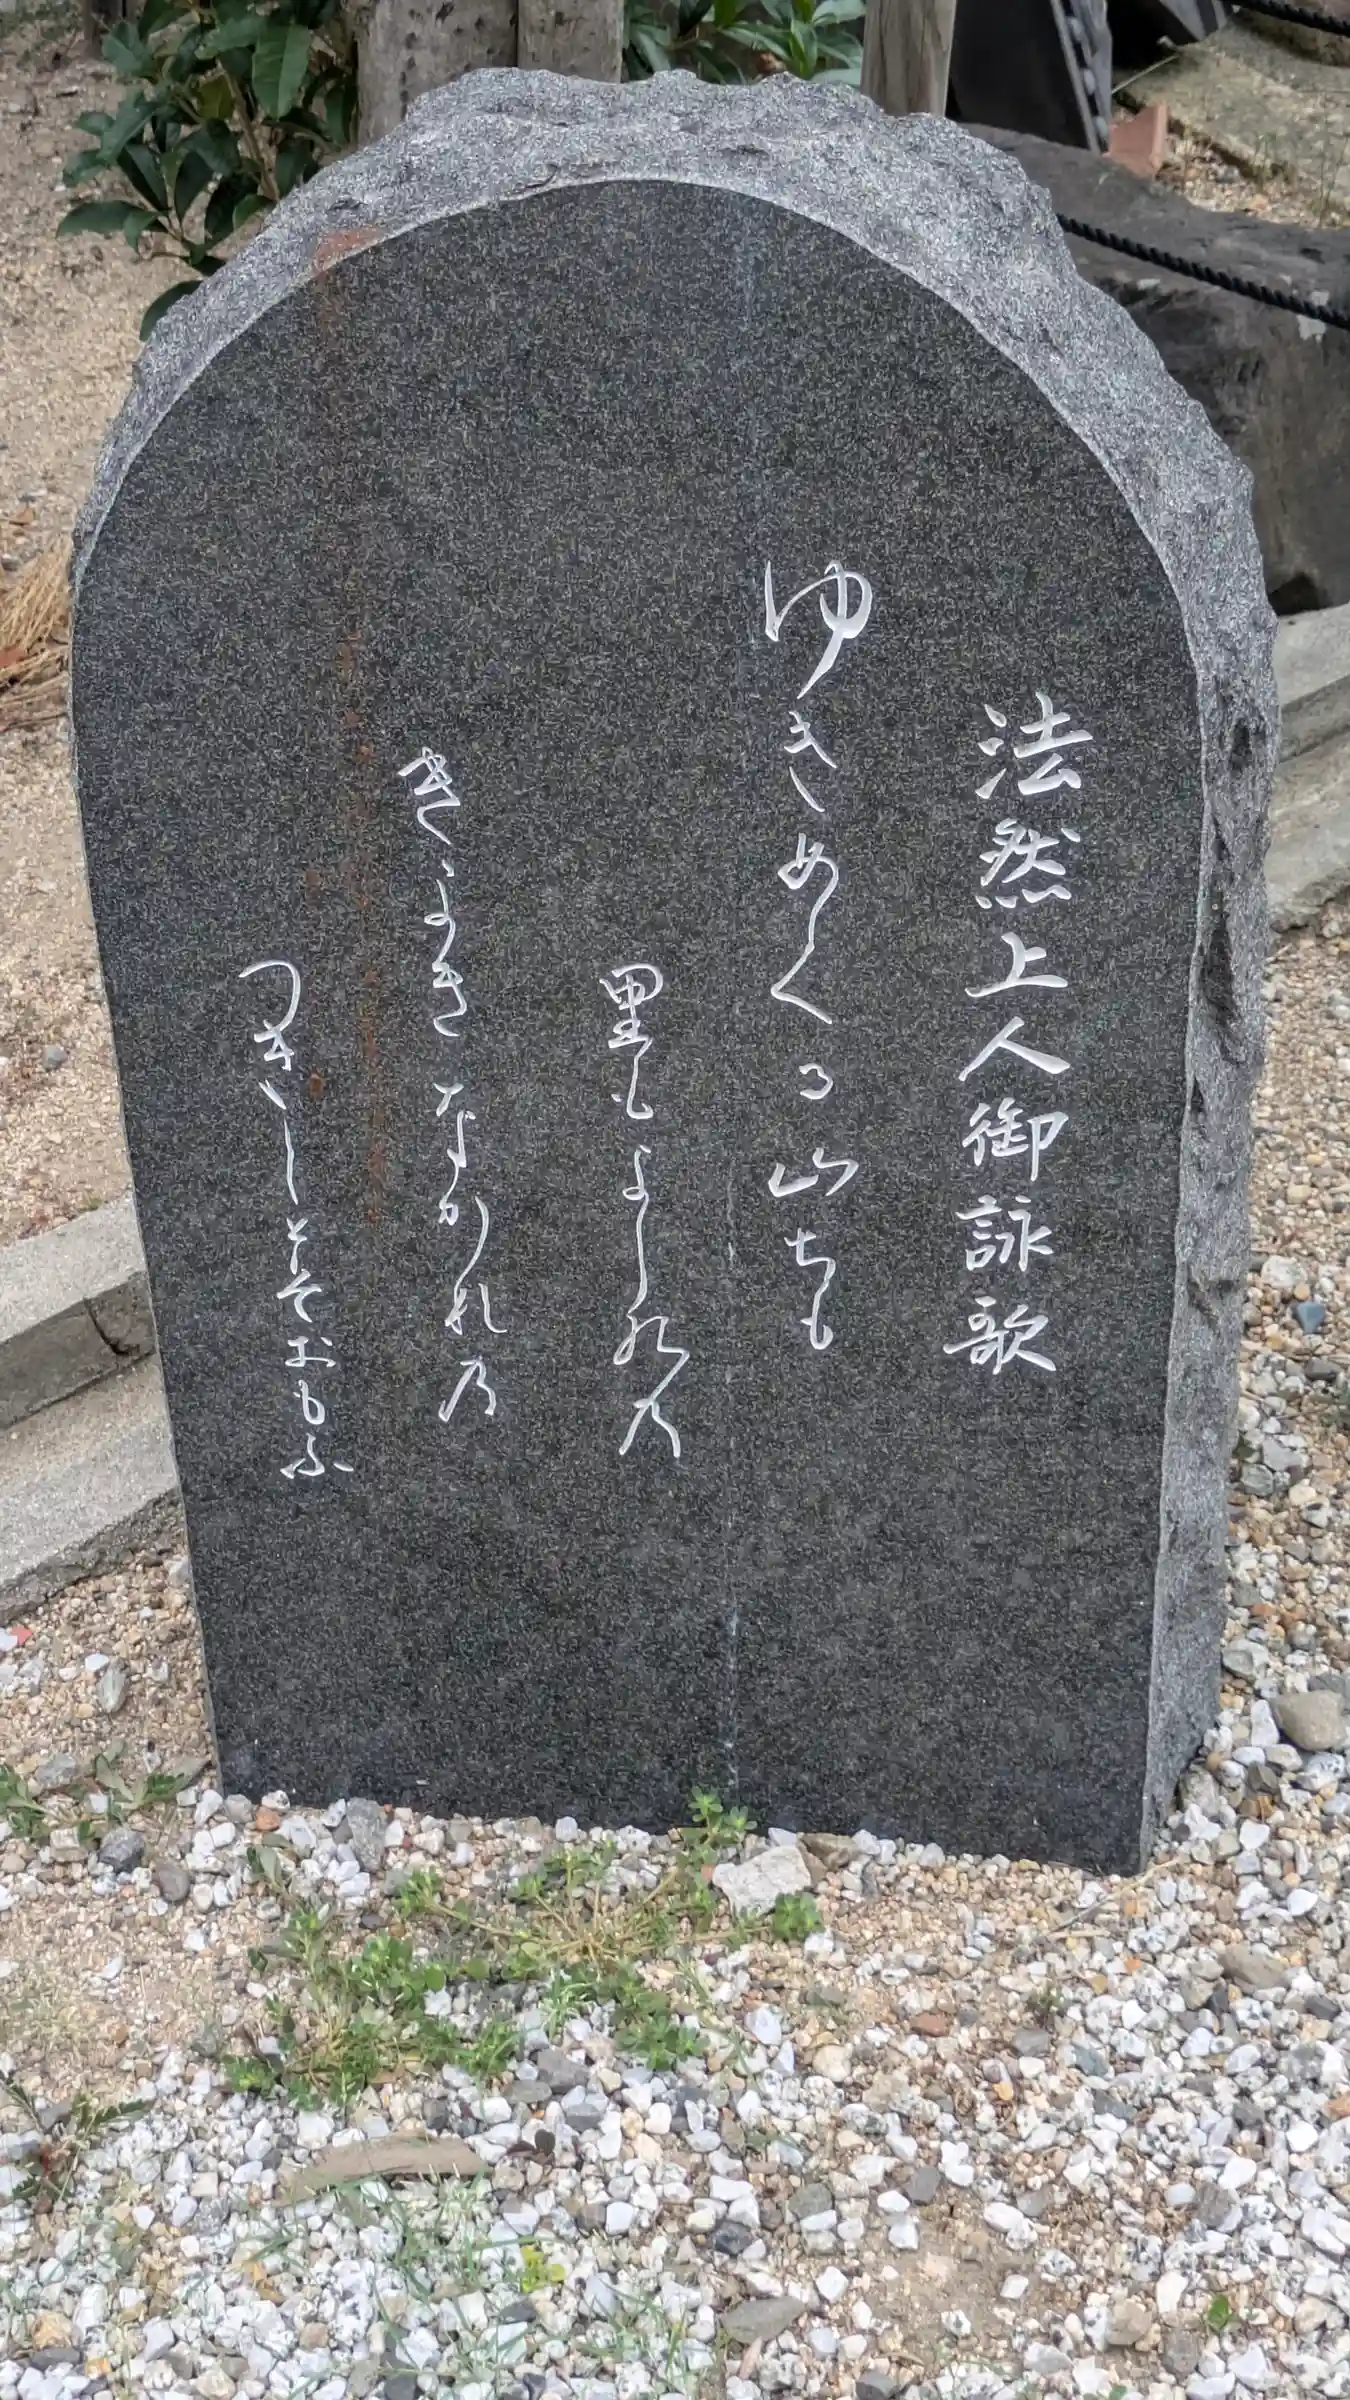 法然上人御詠歌
ゆきめくる山ちも
里もよし水の
きよきなかれ乃
つきしとそおもふ